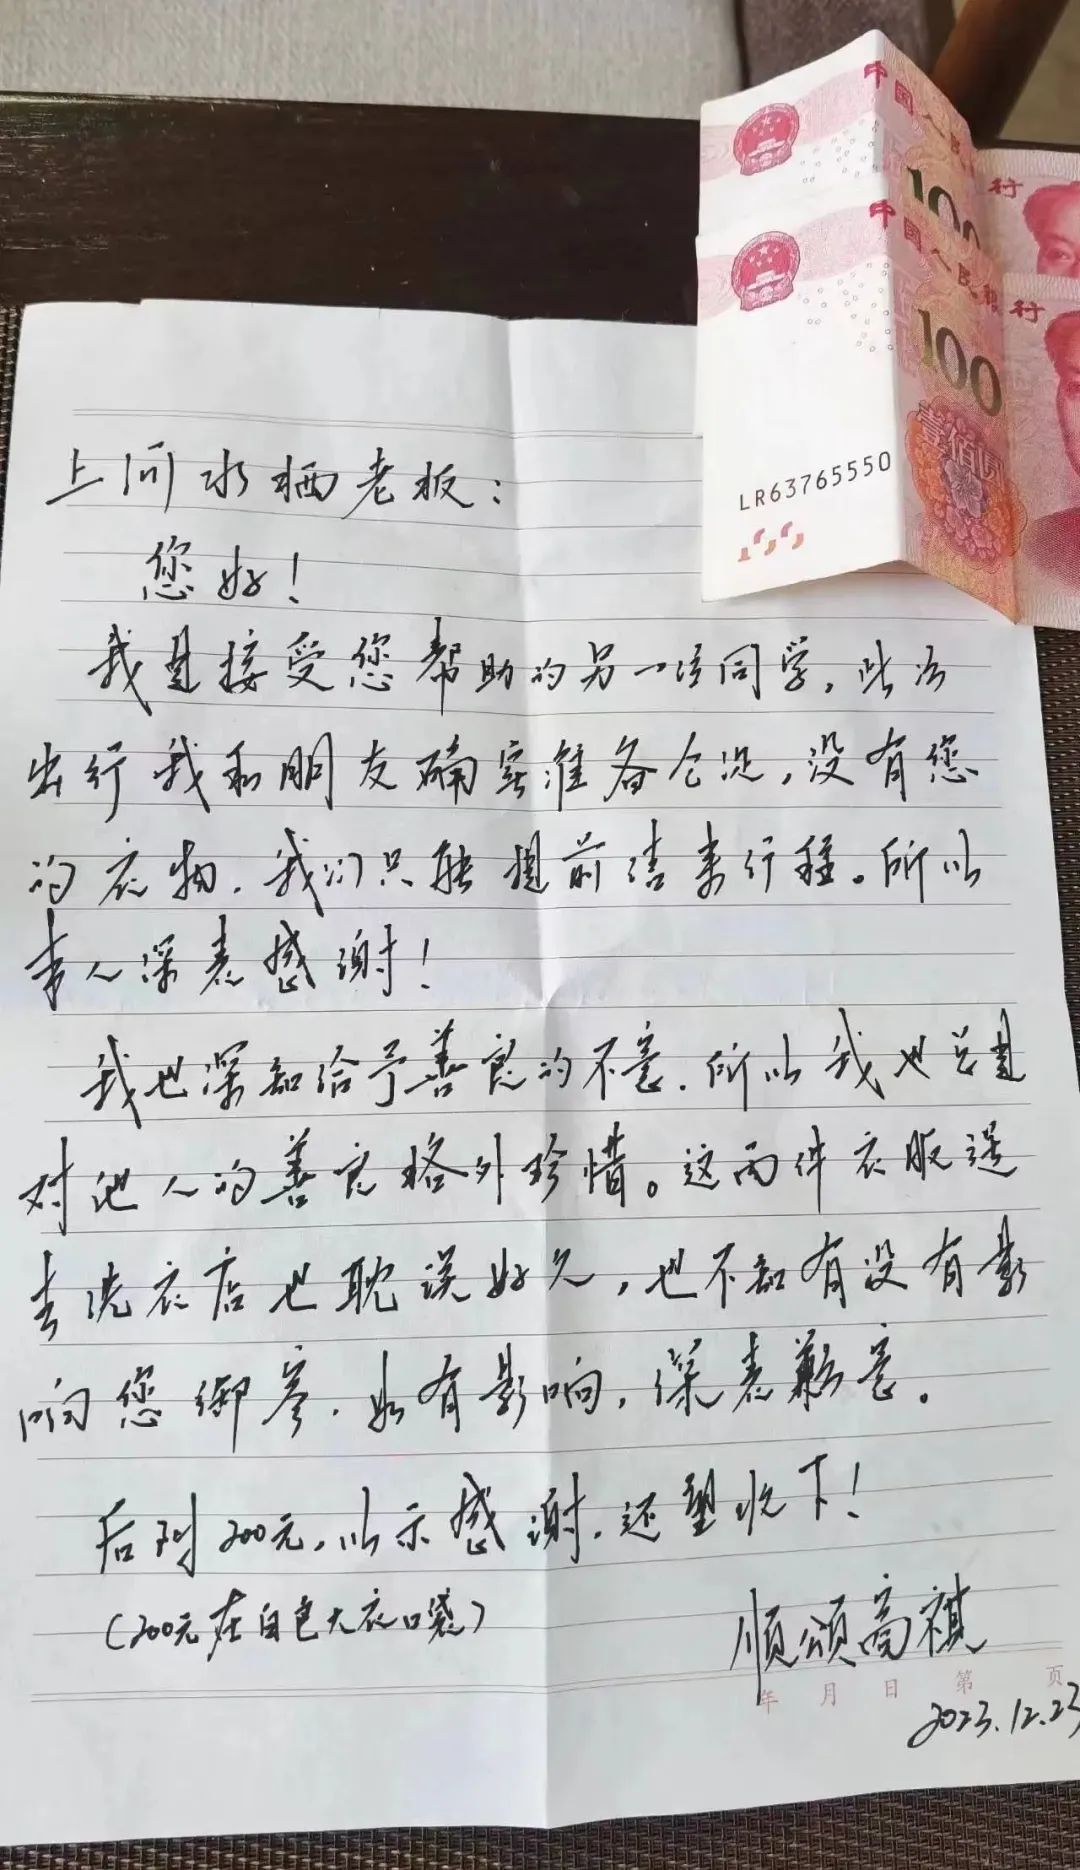 中国人民
100
行
中国人民银行
100
壹佰
LR63765550
上问水栖老板：
您好！
我是接受您帮助的另一位同学，此次
出行我和朋友确实准备仓促，没有您
的衣物，我们只能提前结束行程。所以
本人深表感谢！
我也深知给予善良的不意，所以我也总是
对他人的善良格外珍惜。这两件衣服送
去洗衣店也耽误好久，也不知有没有影
响您御寒，如有影响，深表歉意。
后附200元，以示感谢，还望收下！
（200元在白色大衣口袋）
顺颂高祺
年 月 日 第 页
2023.12.23